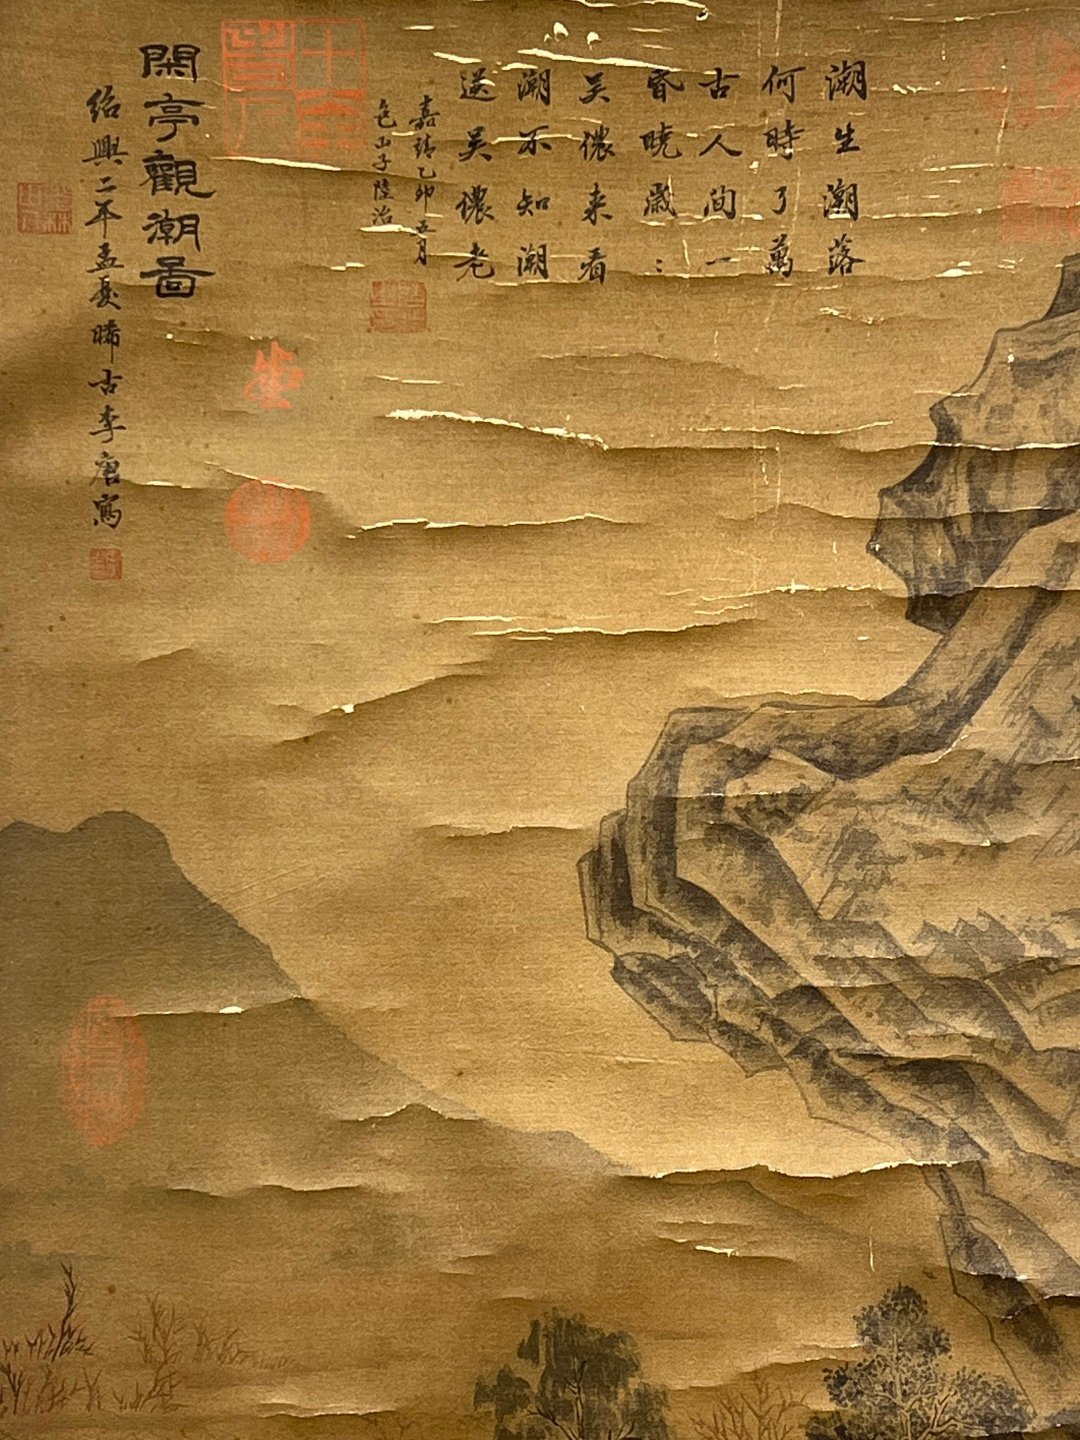 潮生潮落
何時了萬
古人间一
昏曉歲：
吴儂来看
潮不知潮
送吴儂老
嘉靖乙卯五月
包山子陸治
閑亭觀潮圖
紹興二年孟夏晞古李唐寫